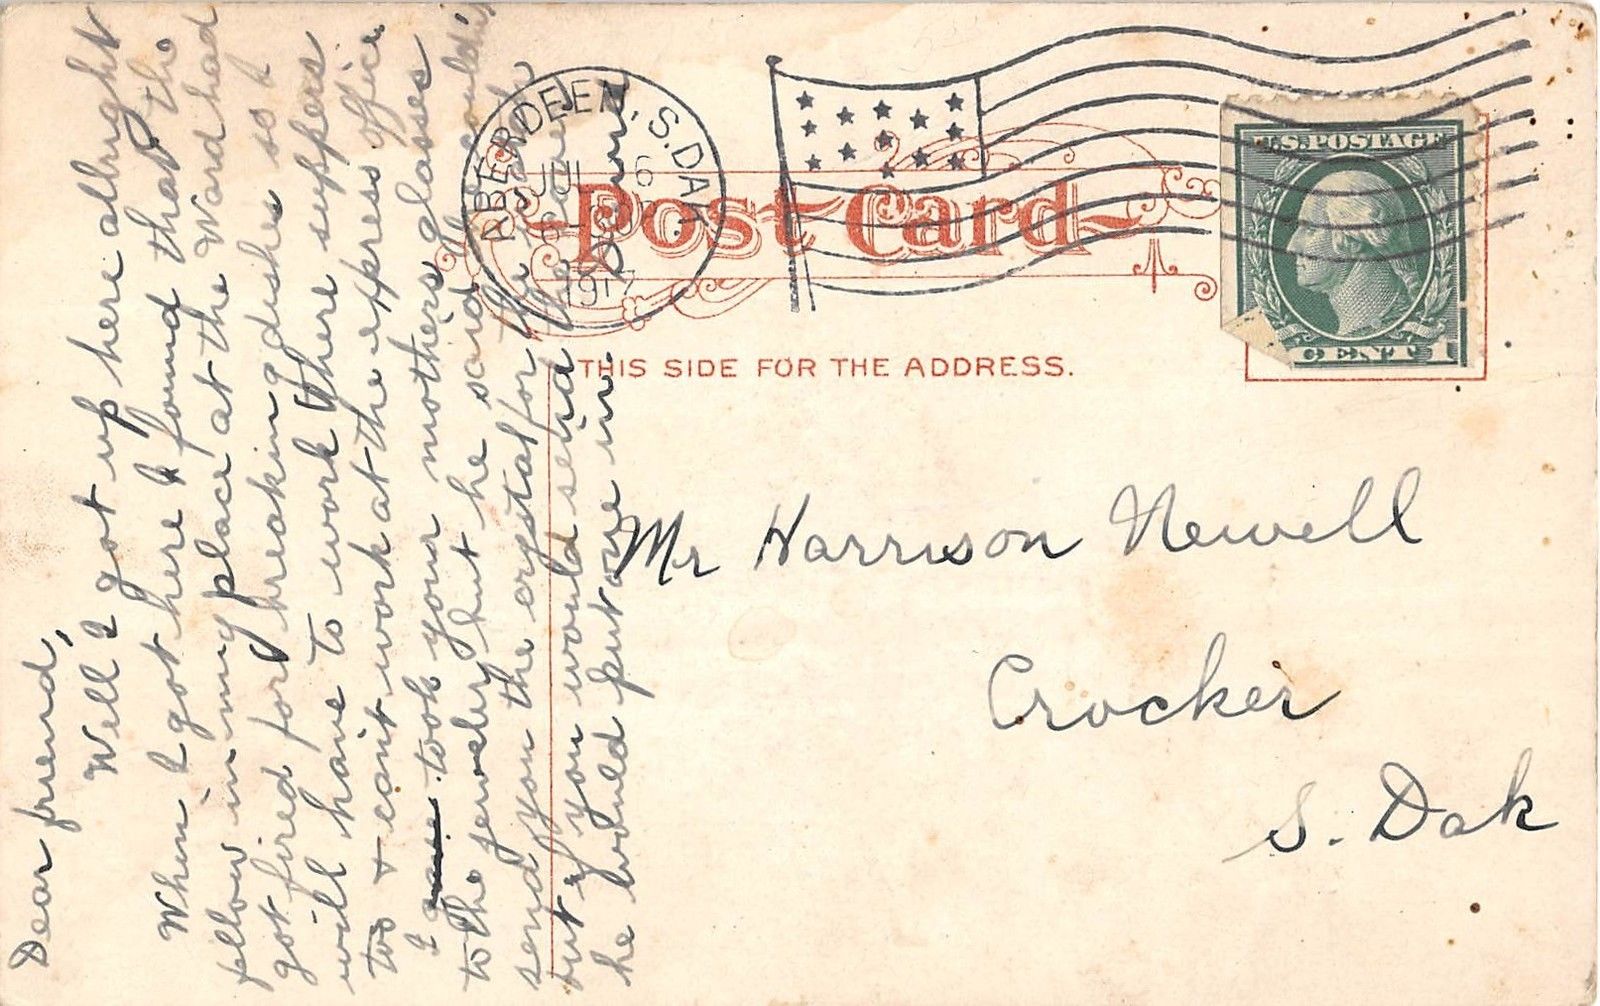 Dear friend,
Well I got up here allright
When I got here I found that the
fellow in my place at the Ward had
got fired for breaking dishes so I
will have to work there suppers
too + can't work at the express office
I took your mothers glasses
to the jewelry but he said he could
send you the crystal for the
but if you would send the
he would put one in
ABERDEEN, S.DAK.
JUL 6
1917
Post Card
THIS SIDE FOR THE ADDRESS.
U.S. POSTAGE
CENT 1
Mr Harrison Newell
Crocker
S. Dak